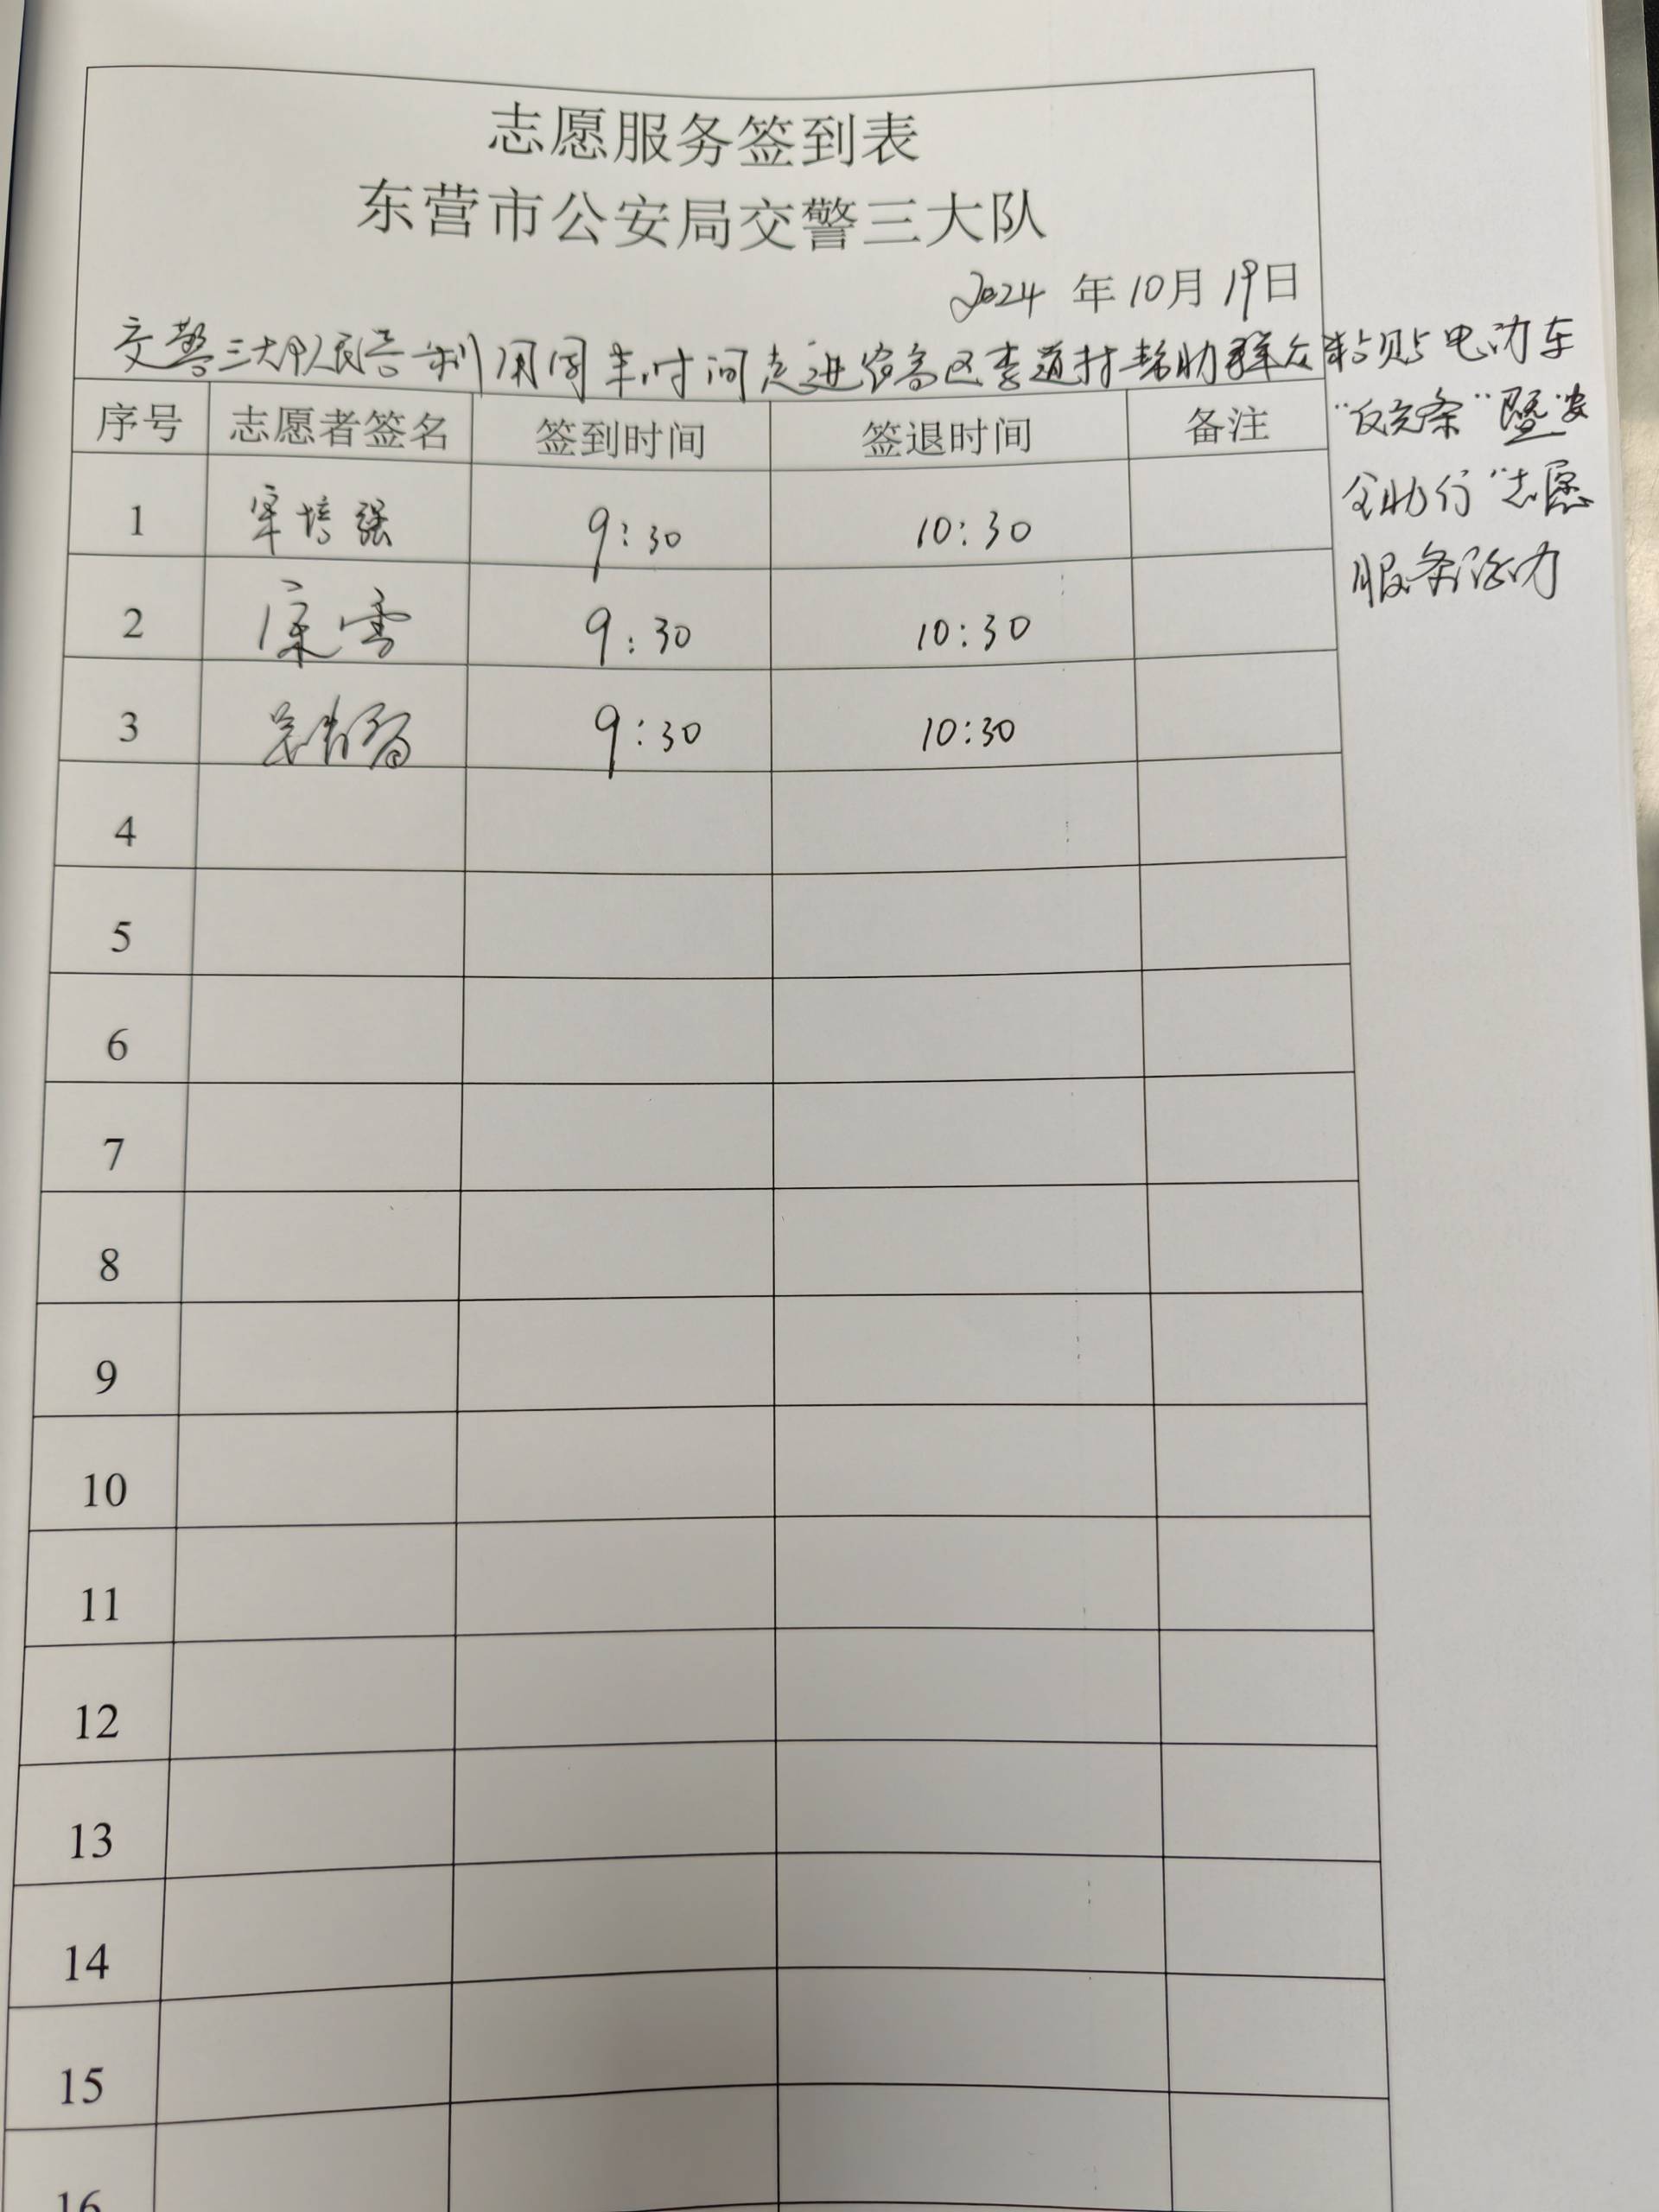 志愿服务签到表
东营市公安局交警三大队
2024 年 10月 19日
交警三大队民警利用周末时间走进农高区李道村帮助群众粘贴电动车
"反光条"暨"安
全助行"志愿
服务活动
序号 志愿者签名 签到时间 签退时间 备注
1 培强 9:30 10:30
2 雪 9:30 10:30
3 9:30 10:30
4
5
6
7
8
9
10
11
12
13
14
15
16